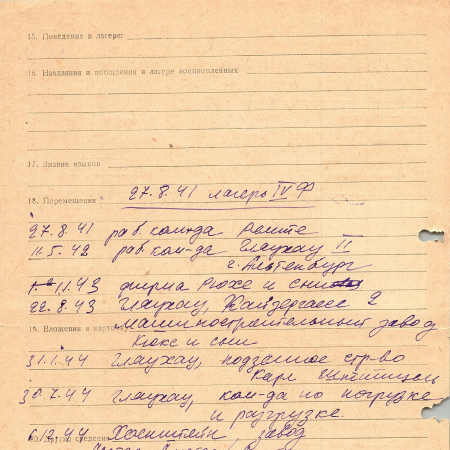 15. Поведение в лагере:
16. Наказания и поощрения в лагере военнопленных
17. Знание языков
18. Перемещения 27.8.41 лагерь IV Ф
27.8.41 раб. ком-да
11.5.42 раб. ком-да Глаухау II
г. Альтенбург
11.43 фирма Рюхе и сын
22.8.43 Глаухау, 2
19. Вложения в
машиностроительный завод
Кюкс и сын
31.1.44 Глаухау, подземное стр-во
Карл
30.7.44 Глаухау, ком-да по погрузке
и разгрузке.
6.12.44 Хоенштейн, завод
20. Другие сведения